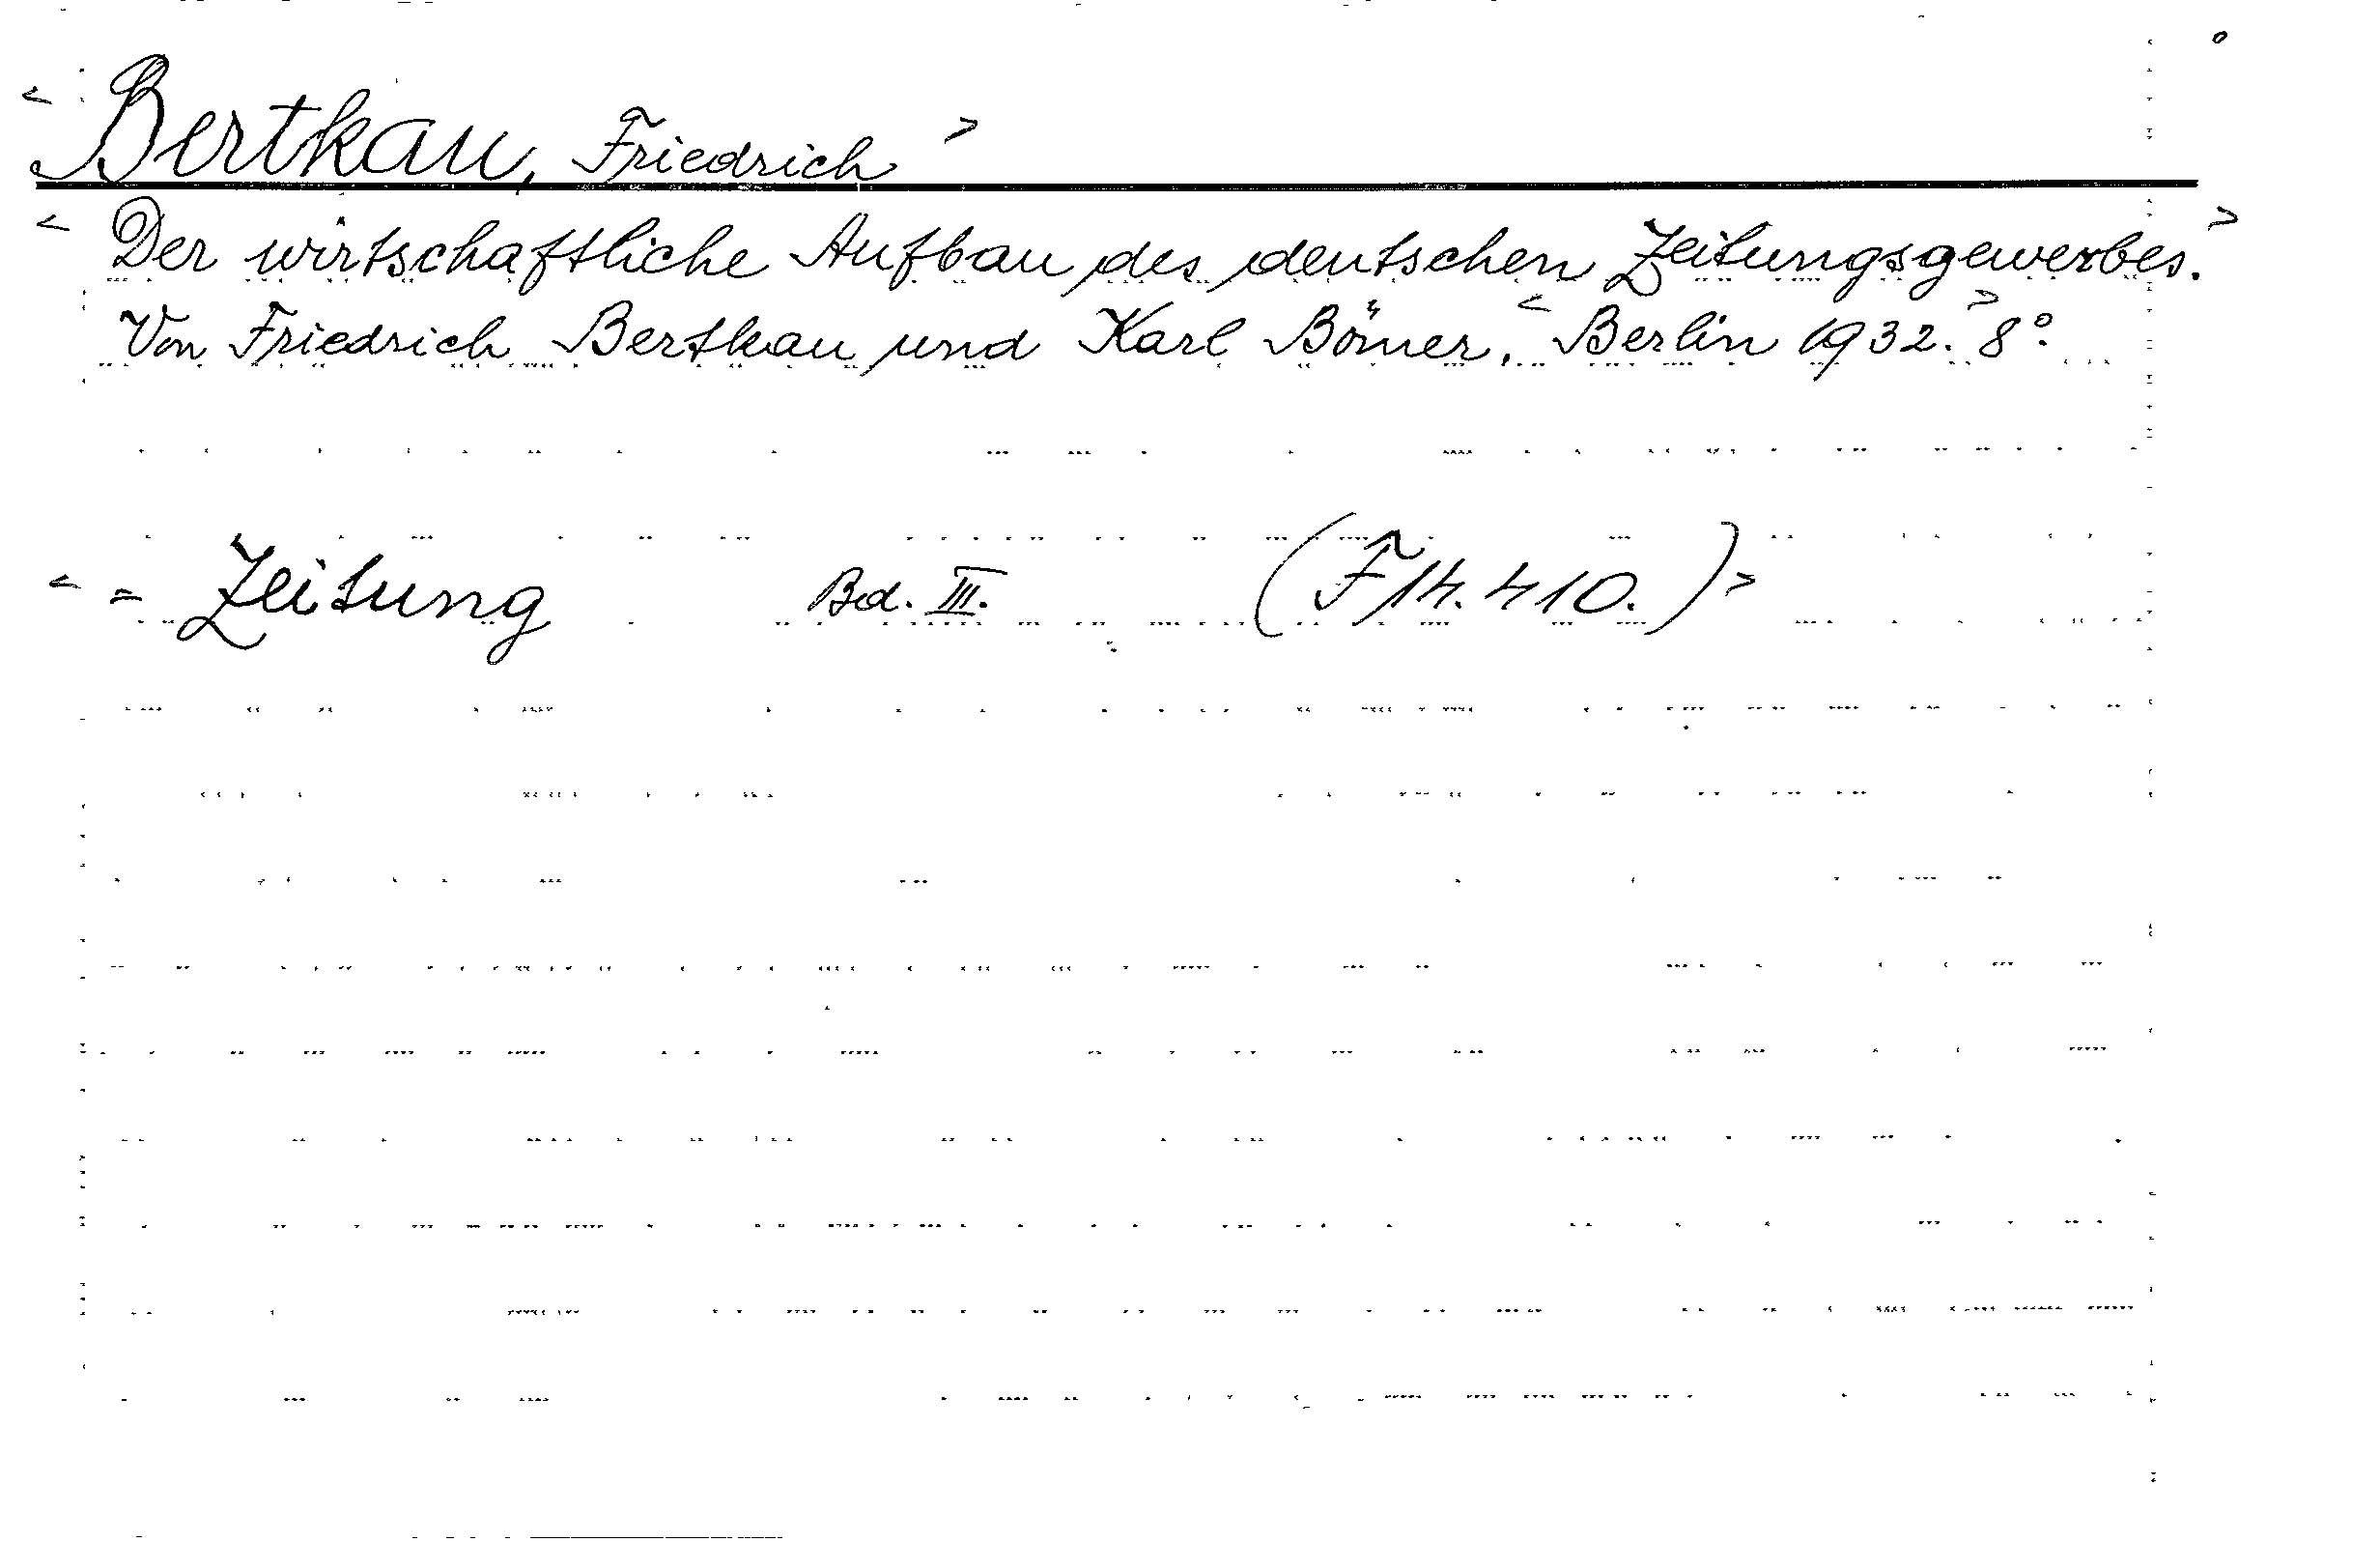 < Bertkau, Friedrich >
< Der wirtschaftliche Aufbau des deutschen Zeitungsgewerbes. >
Von Friedrich Bertkau und Karl Bömer. < Berlin 1932. > 8°.
< = Zeitung Bd. III. (F 14. 410.) >